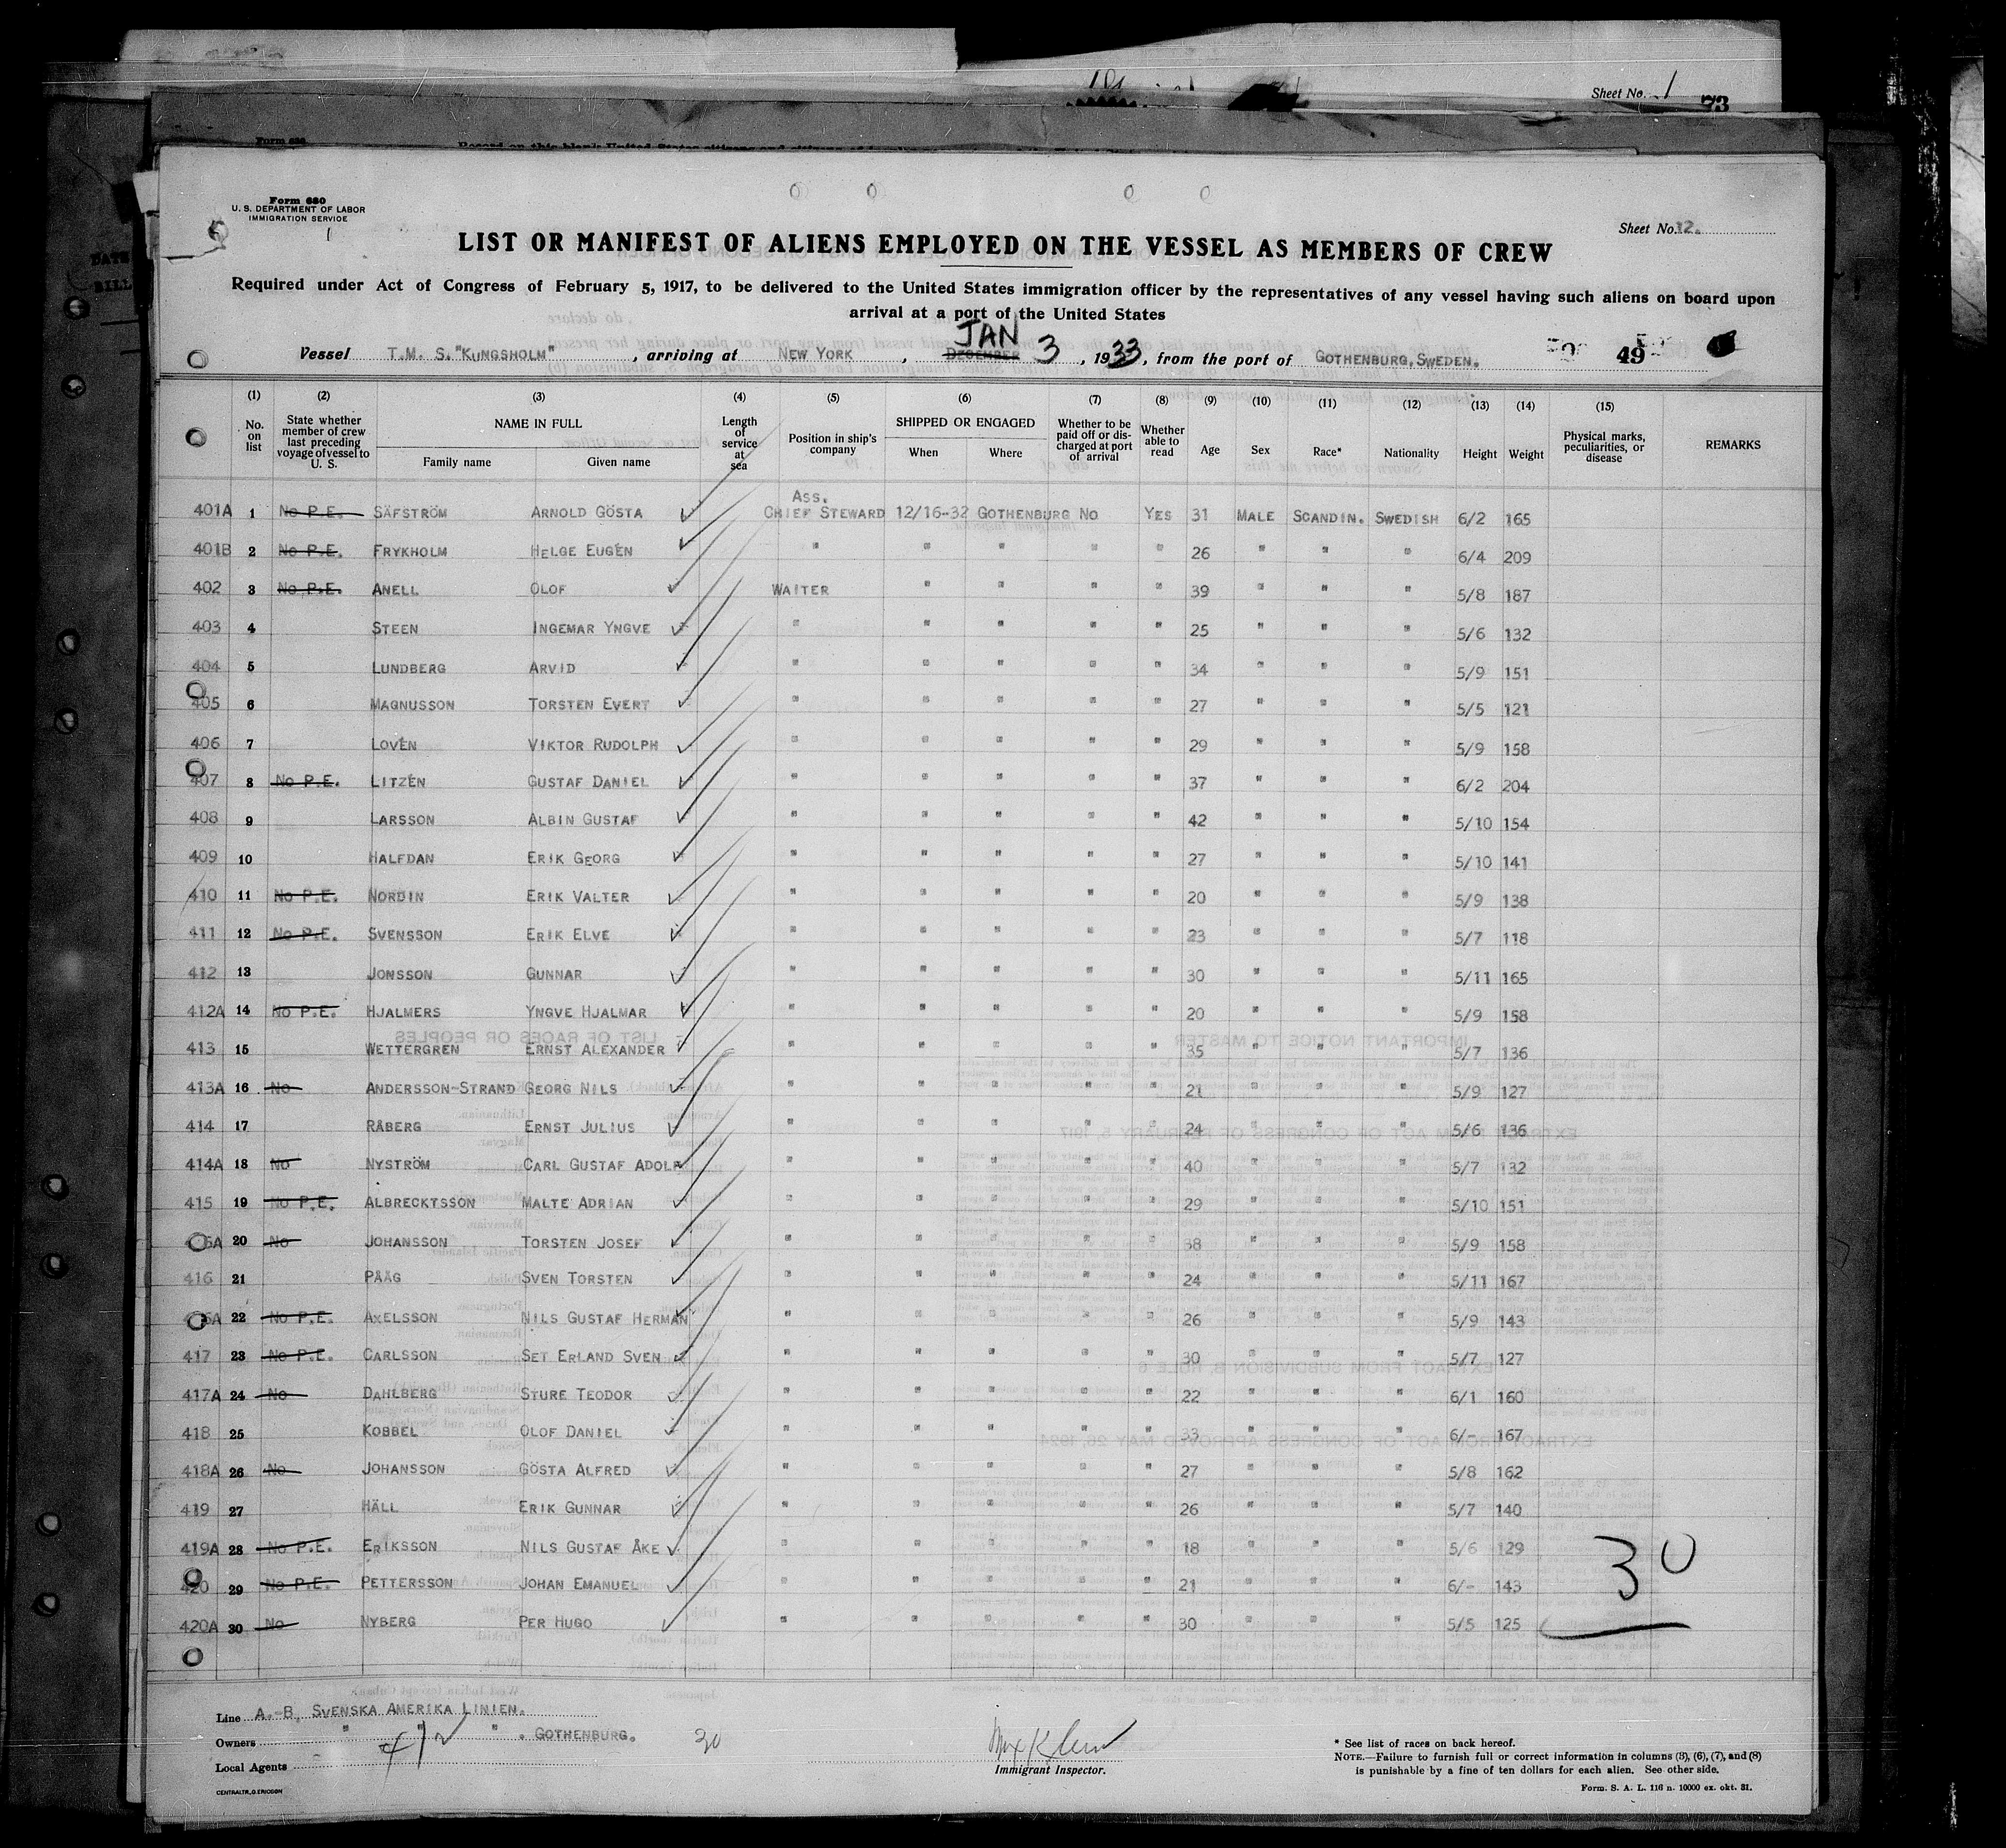 Sheet No. 1
73
Form 680
Form 680
U. S. DEPARTMENT OF LABOR
IMMIGRATION SERVICE
Sheet No. 12.
LIST OR MANIFEST OF ALIENS EMPLOYED ON THE VESSEL AS MEMBERS OF CREW
Required under Act of Congress of February 5, 1917, to be delivered to the United States immigration officer by the representatives of any vessel having such aliens on board upon
arrival at a port of the United States
Vessel T.M. S."KUNGSHOLM", arriving at NEW YORK, DECEMBER JAN 3, 1933, from the port of GOTHENBURG, SWEDEN. 49
(1) (2) (3) (4) (5) (6) (7) (8) (9) (10) (11) (12) (13) (14) (15)
No. on list State whether member of crew last preceding voyage of vessel to U. S. NAME IN FULL Family name Given name Length of service at sea Position in ship's company SHIPPED OR ENGAGED When Where Whether to be paid off or discharged at port of arrival Whether able to read Age Sex Race* Nationality Height Weight Physical marks, peculiarities, or disease REMARKS
401A 1 No P.E. SÄFSTRÖM ARNOLD GÖSTA ASS. CHIEF STEWARD 12/16-32 GOTHENBURG NO YES 31 MALE SCANDIN. SWEDISH 6/2 165
401B 2 No P.E. FRYKHOLM HELGE EUGÉN " " " " " 26 " " " 6/4 209
402 3 No P.E. ANELL OLOF WAITER " " " " 39 " " " 5/8 187
403 4 STEEN INGEMAR YNGVE " " " " " 25 " " " 5/6 132
404 5 LUNDBERG ARVID " " " " " 34 " " " 5/9 151
405 6 MAGNUSSON TORSTEN EVERT " " " " " 27 " " " 5/5 121
406 7 LOVÉN VIKTOR RUDOLPH " " " " " 29 " " " 5/9 158
407 8 No P.E. LITZÉN GUSTAF DANIEL " " " " " 37 " " " 6/2 204
408 9 LARSSON ALBIN GUSTAF " " " " " 42 " " " 5/10 154
409 10 HALFDAN ERIK GEORG " " " " " 27 " " " 5/10 141
410 11 No P.E. NORDIN ERIK VALTER " " " " " 20 " " " 5/9 138
411 12 No P.E. SVENSSON ERIK ELVE " " " " " 23 " " " 5/7 118
412 13 JONSSON GUNNAR " " " " " 30 " " " 5/11 165
412A 14 No P.E. HJALMERS YNGVE HJALMAR " " " " " 20 " " " 5/9 158
413 15 WETTERGREN ERNST ALEXANDER " " " " " 35 " " " 5/7 136
413A 16 No ANDERSSON-STRAND GEORG NILS " " " " " 21 " " " 5/9 127
414 17 RÅBERG ERNST JULIUS " " " " " 24 " " " 5/6 136
414A 18 No NYSTRÖM CARL GUSTAF ADOLF " " " " " 40 " " " 5/7 132
415 19 No P.E. ALBRECKTSSON MALTE ADRIAN " " " " " 29 " " " 5/10 151
20 No JOHANSSON TORSTEN JOSEF " " " " " 38 " " " 5/9 158
416 21 PÅÅG SVEN TORSTEN " " " " " 24 " " " 5/11 167
22 No P.E. AXELSSON NILS GUSTAF HERMAN " " " " " 26 " " " 5/9 143
417 23 No P.E. CARLSSON SET ERLAND SVEN " " " " " 30 " " " 5/7 127
417A 24 No DAHLBERG STURE TEODOR " " " " " 22 " " " 6/1 160
418 25 KOBBEL OLOF DANIEL " " " " " 33 " " " 6/- 167
418A 26 No JOHANSSON GÖSTA ALFRED " " " " " 27 " " " 5/8 162
419 27 HÄLL ERIK GUNNAR " " " " " 26 " " " 5/7 140
419A 28 No P.E. ERIKSSON NILS GUSTAF ÅKE " " " " " 18 " " " 5/6 129
420 29 No P.E. PETTERSSON JOHAN EMANUEL " " " " " 21 " " " 6/- 143
420A 30 No NYBERG PER HUGO " " " " " 30 " " " 5/5 125
30
Line A.-B. SVENSKA AMERIKA LINIEN.
Owners " " " . GOTHENBURG. 30
Local Agents
Max Klein
Immigrant Inspector.
* See list of races on back hereof.
NOTE.—Failure to furnish full or correct information in columns (3), (6), (7), and (8)
is punishable by a fine of ten dollars for each alien. See other side.
CENTRALTR., G. ERICSON
Form. S. A. L. 116 n. 10000 ex. okt. 31.